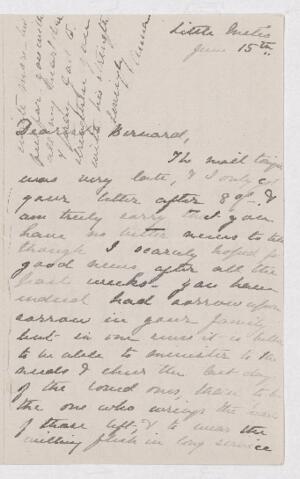 Little Metis
June 15th
Dearest Bernard,
The mail
was very late, & I only got
your letter after 8 & I
am truly sorry that you
have no better news to
though I scarcely hoped for
good news after all the
past weeks - you have
indeed had sorrow upon
sorrow in your family
but in one sense it is better
to be able to minister to the
needs & cheer the last days
of the loved ones, than to be
the one who wrings the
of those left, & to wear the
willing flesh in long service
write more - but
you with
all my heart
& pray God to
strengthen you
with his strength